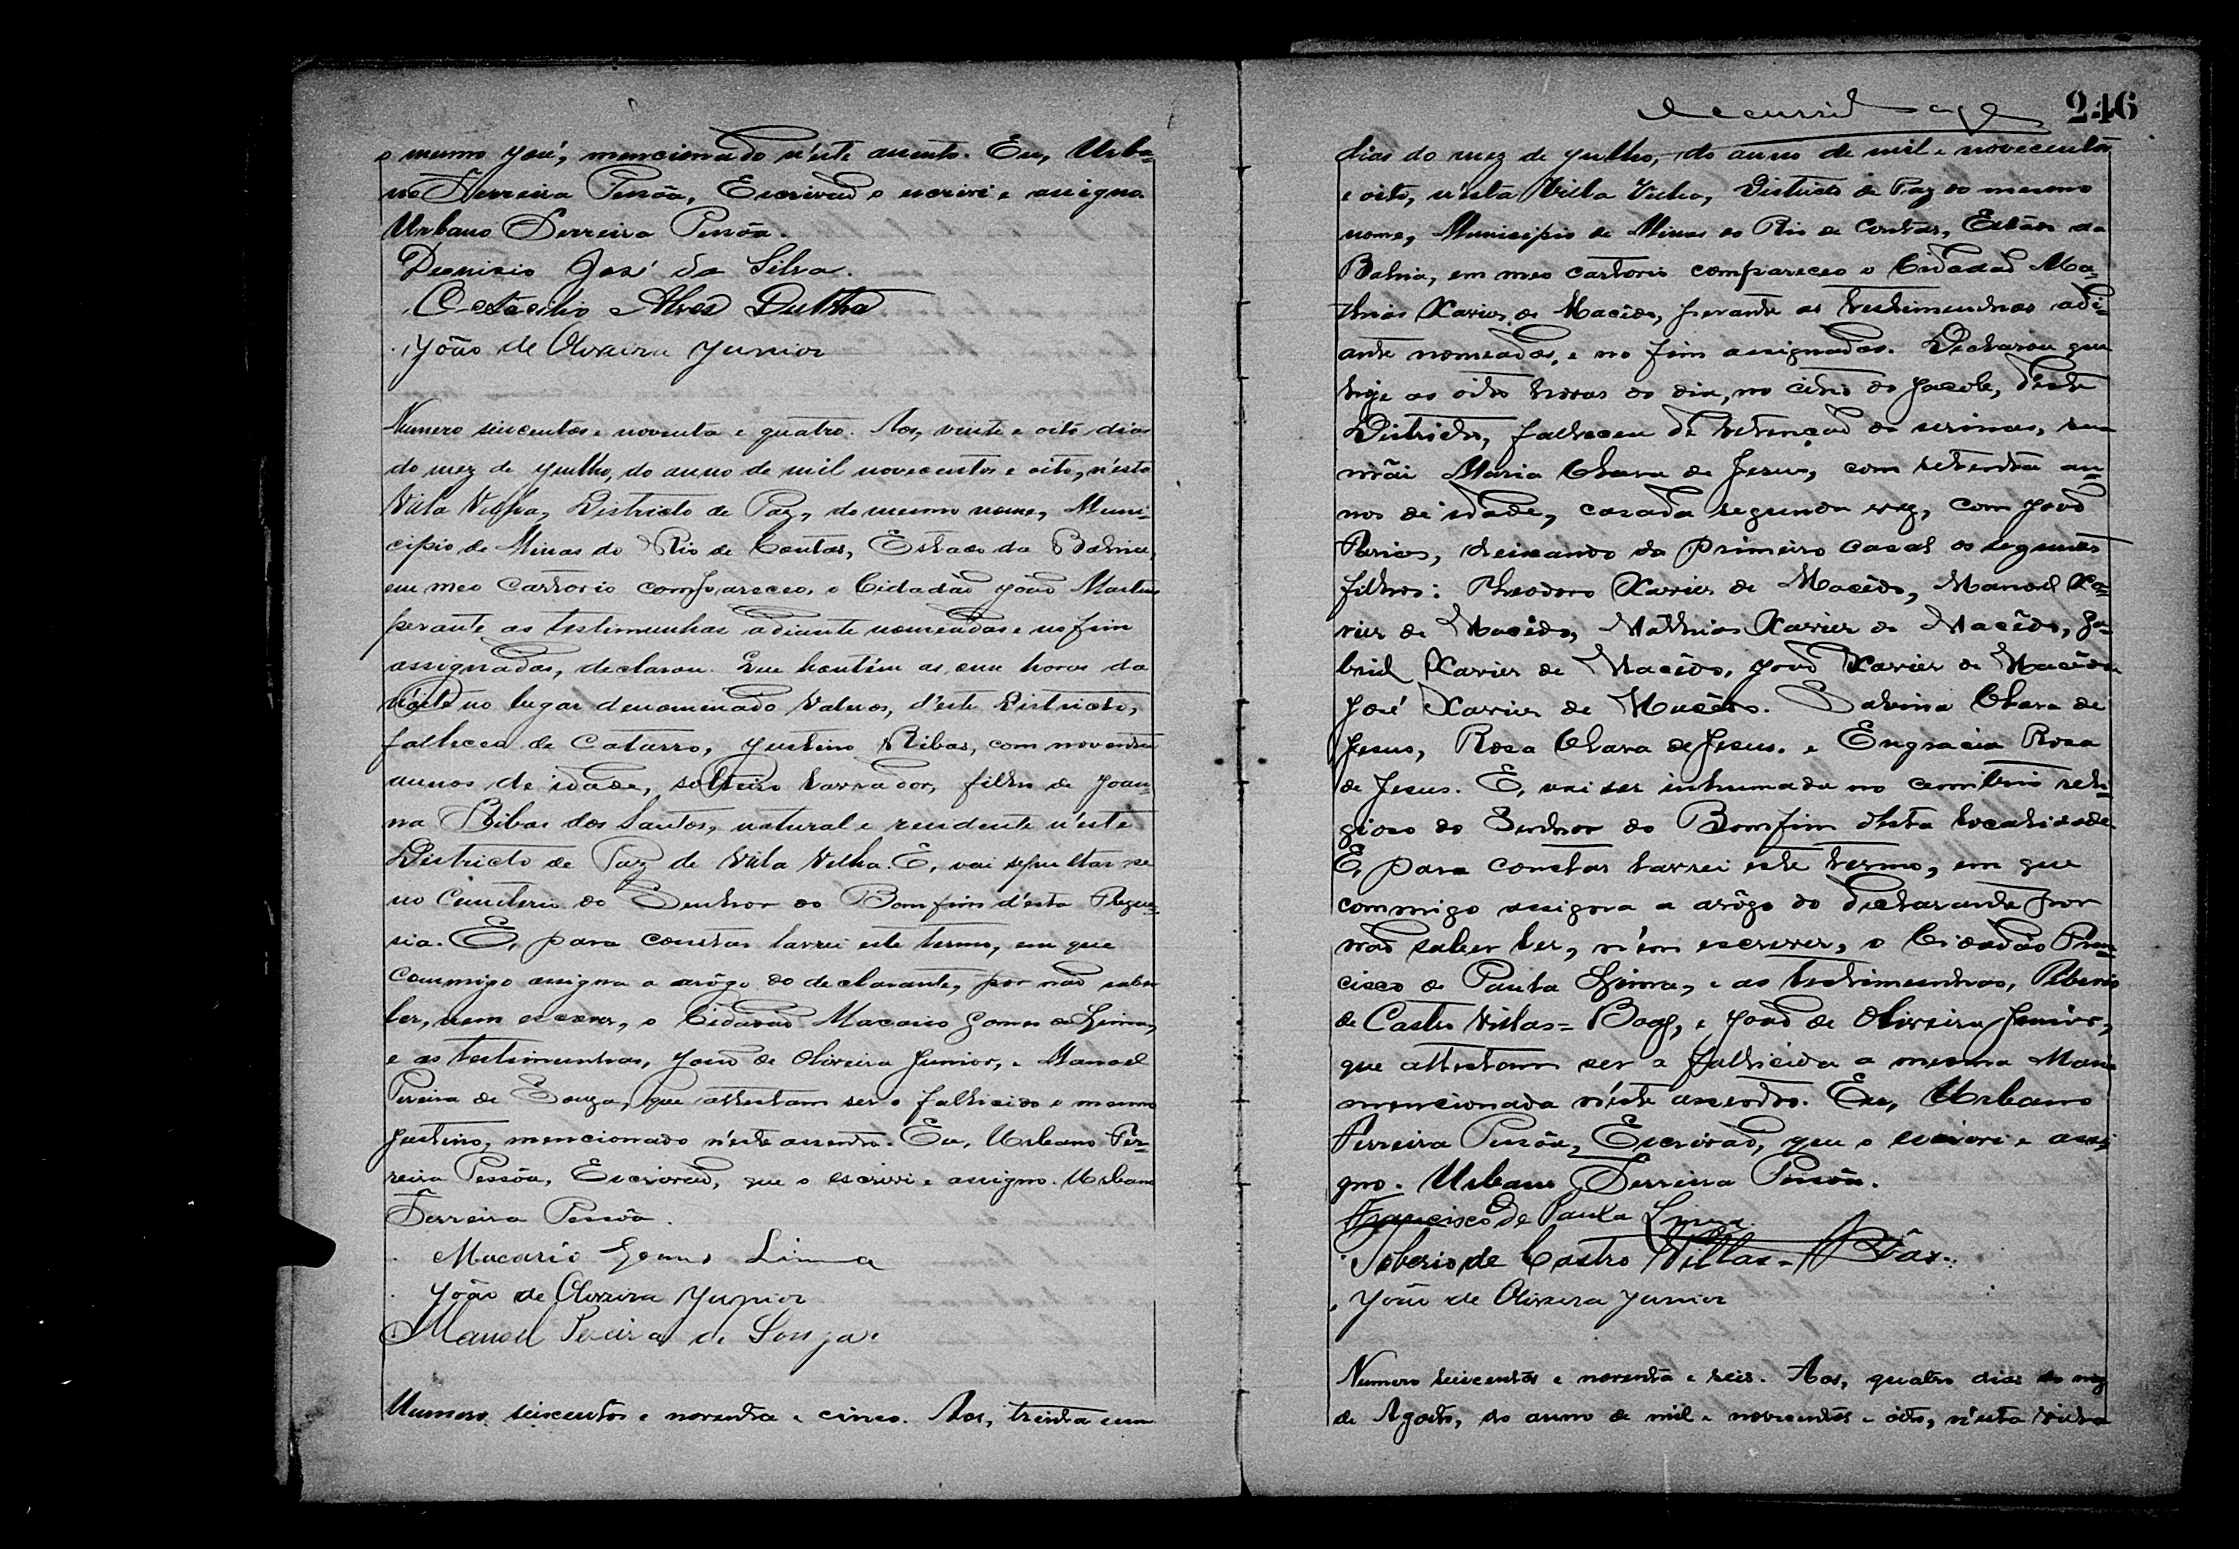 o mesmo José, mencionado n'este assento. Eu, Urba-
no Ferreira Pessôa, Escrivão o escrivi e assigno.
Urbano Ferreira Pessôa.
Dionisio José da Silva.
Alves Dultra
João de Oliveira Junior
Numero seiscentos e noventa e quatro. Aos, vinte e oito dias
do mez de Julho, do anno de mil novecentos e oito, n'esta
Villa Velha, Districto de Paz, do mesmo nome, Muni-
cipio de Minas do Rio de Contas, Estado da Bahia,
em meo Cartorio compareceo, o Cidadão João Martins
perante as testimunhas adiante nomeadas e no fim
assignadas, declarou. Que hontem as horas da
nóite no lugar denominado Vaturos, d'este Districto,
falleceu de Catarro, Justino Ribas, com noventa
annos de idade, solteiro lavrador, filho de Joan-
na Ribas dos Santos, natural e residente n'este
Districto de Paz de Villa Velha. E, vai sepultar-se
no Cemiterio do Senhor do Bomfim d'esta Fregue-
sia. E, para constar lavrei este termo, em que
commigo assigna a arôgo do declarante, por não saber
ler, nem escrever, o Cidadão Macario Gomes de Lima,
e as testimunhas, João de Oliveira Junior, e Manoel
Pereira de Souza, que attestam ser o fallicido o mesmo
Justino, mencionado n'este assento. Eu, Urbano Fer-
reira Pessôa, Escrivão, que o escrivi e assigno. Urbano
Ferreira Pessôa.
Macario Gomes Lima
João de Oliveira Junior
Manoel Pereira de Souza.
Numero seiscentos e noventa e cinco. Aos, trinta e um
246
dias do mez de Julho, do anno de mil e novecentos
e oito, n'esta Villa Velha, Districto de Paz do mesmo
nome, Municipio de Minas do Rio de Contas, Estado da
Bahia, em meo cartorio compareceo o Cidadão Ma-
thias Xavier de Macêdo, perante as testimunhas adi-
ante nomeadas, e no fim assignadas. Declarou que
hoje as oito horas do dia, no citio do Jacob, deste
Districto, falleceu de retenção de urinas, sua
mãi Maria Clara de Jesus, com setenta an-
nos de idade, casada segunda vez, com João
deixando do primeiro casal os seguintes
filhos: Theodoro Xavier de Macêdo, Manoel Xa-
vier de Macêdo, Mathias Xavier de Macêdo, Ga-
briel Xavier de Macêdo, João Xavier de Macêdo
José Xavier de Macêdo. Sabina Clara de
Jesus, Rosa Clara de Jesus. e Engracia Rosa
de Jesus. E, vai ser inhumada no cemiterio reli-
gioso do Senhor do Bomfim desta localidade
E, para constar lavrei este termo, em que
commigo assigna a arôgo do declarante por
não saber ler, n'em escrever, o Cidadão Fran-
cisco de Paula Lima, e as testimunhas, Tiberio
de Castro Villas-Boas, e João de Oliveira Junior,
que attestam ser a fallicida a mesma Maria
mencionada n'este assento. Eu, Urbano
Ferreira Pessôa, Escrivão, que o escrivi e assi-
gno. Urbano Ferreira Pessôa.
Francisco de Paula Lima
Tiberio de Castro Villas-Bôas.
João de Oliveira Junior
Numero seiscentos e noventa e seis. Aos, quatro dias do mez
de Agosto, do anno de mil e novecentos e oito, n'esta Villa